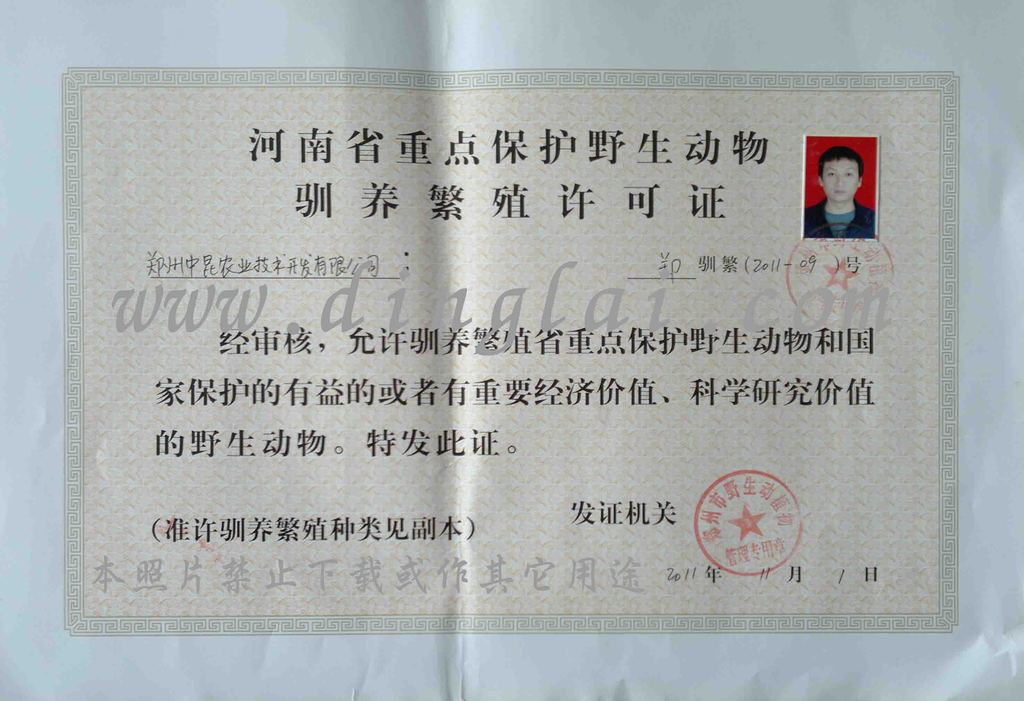 河南省重点保护野生动物
驯养繁殖许可证
郑州中昆农业技术开发有限公司：
郑 驯繁(2011-09)号
www.dinglai.com
经审核，允许驯养繁殖省重点保护野生动物和国
家保护的有益的或者有重要经济价值、科学研究价值
的野生动物。特发此证。
发证机关
郑州市野生动植物
管理专用章
（准许驯养繁殖种类见副本）
本照片禁止下载或作其它用途
2011年 11月 1日